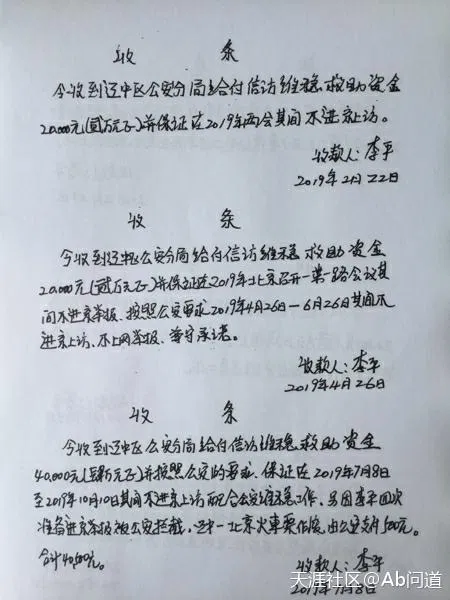 收 条
今收到辽中区公安分局给付信访维稳救助资金
20,000元(贰万元正)并保证在2019年两会其间不进京上访。
收款人:李平
2019年2月22日
收 条
今收到辽中区公安分局给付信访维稳救助资金
20,000元(贰万元正)并保证在2019年北京召开一带一路会议其
间不进京举报、按照公安要求2019年4月26日—6月26日其间不
进京上访、不上网举报、遵守承诺。
收款人:李平
2019年4月26日
收 条
今收到辽中区公安分局给付信访维稳救助资金
40,000元(肆万元正)并按照公安的要求、保证在2019年7月8日
至2019年10月10日其间不进京上访配合公安维稳工作、另因李平四次
准备进京举报被公安拦截,辽中—北京火车票作废,由公安支付500元。
合计40,500元。
收款人:李平
2019年7月8日
天涯社区@Ab问道